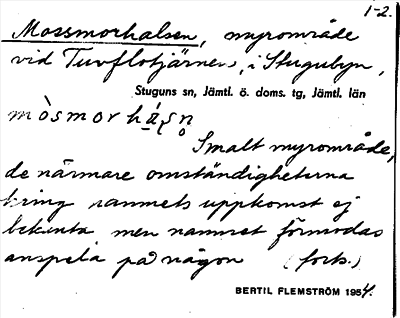 1-2.
Mossmorhalsen, myrområde
vid Tuvflotjärnen, i Stugubyn,
Stuguns sn, Jämtl. ö. doms. tg, Jämtl. län
Smalt myrområde,
de närmare omständigheterna
kring namnets uppkomst ej
bekanta men namnet förmodas
anspela på någon (forts.)
BERTIL FLEMSTRÖM 1954.